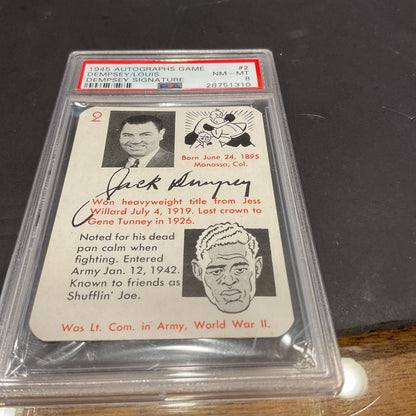 1945 AUTOGRAPHS GAME #2
DEMPSEY/LOUIS NM-MT
DEMPSEY SIGNATURE 8
PSA 28751310
2
Born June 24, 1895
Monassa, Col.
Jack Dempsey
Won heavyweight title from Jess
Willard July 4, 1919. Lost crown to
Gene Tunney in 1926.
Noted for his dead
pan calm when
fighting. Entered
Army Jan. 12, 1942.
Known to friends as
Shufflin' Joe.
Was Lt. Com. in Army, World War II.